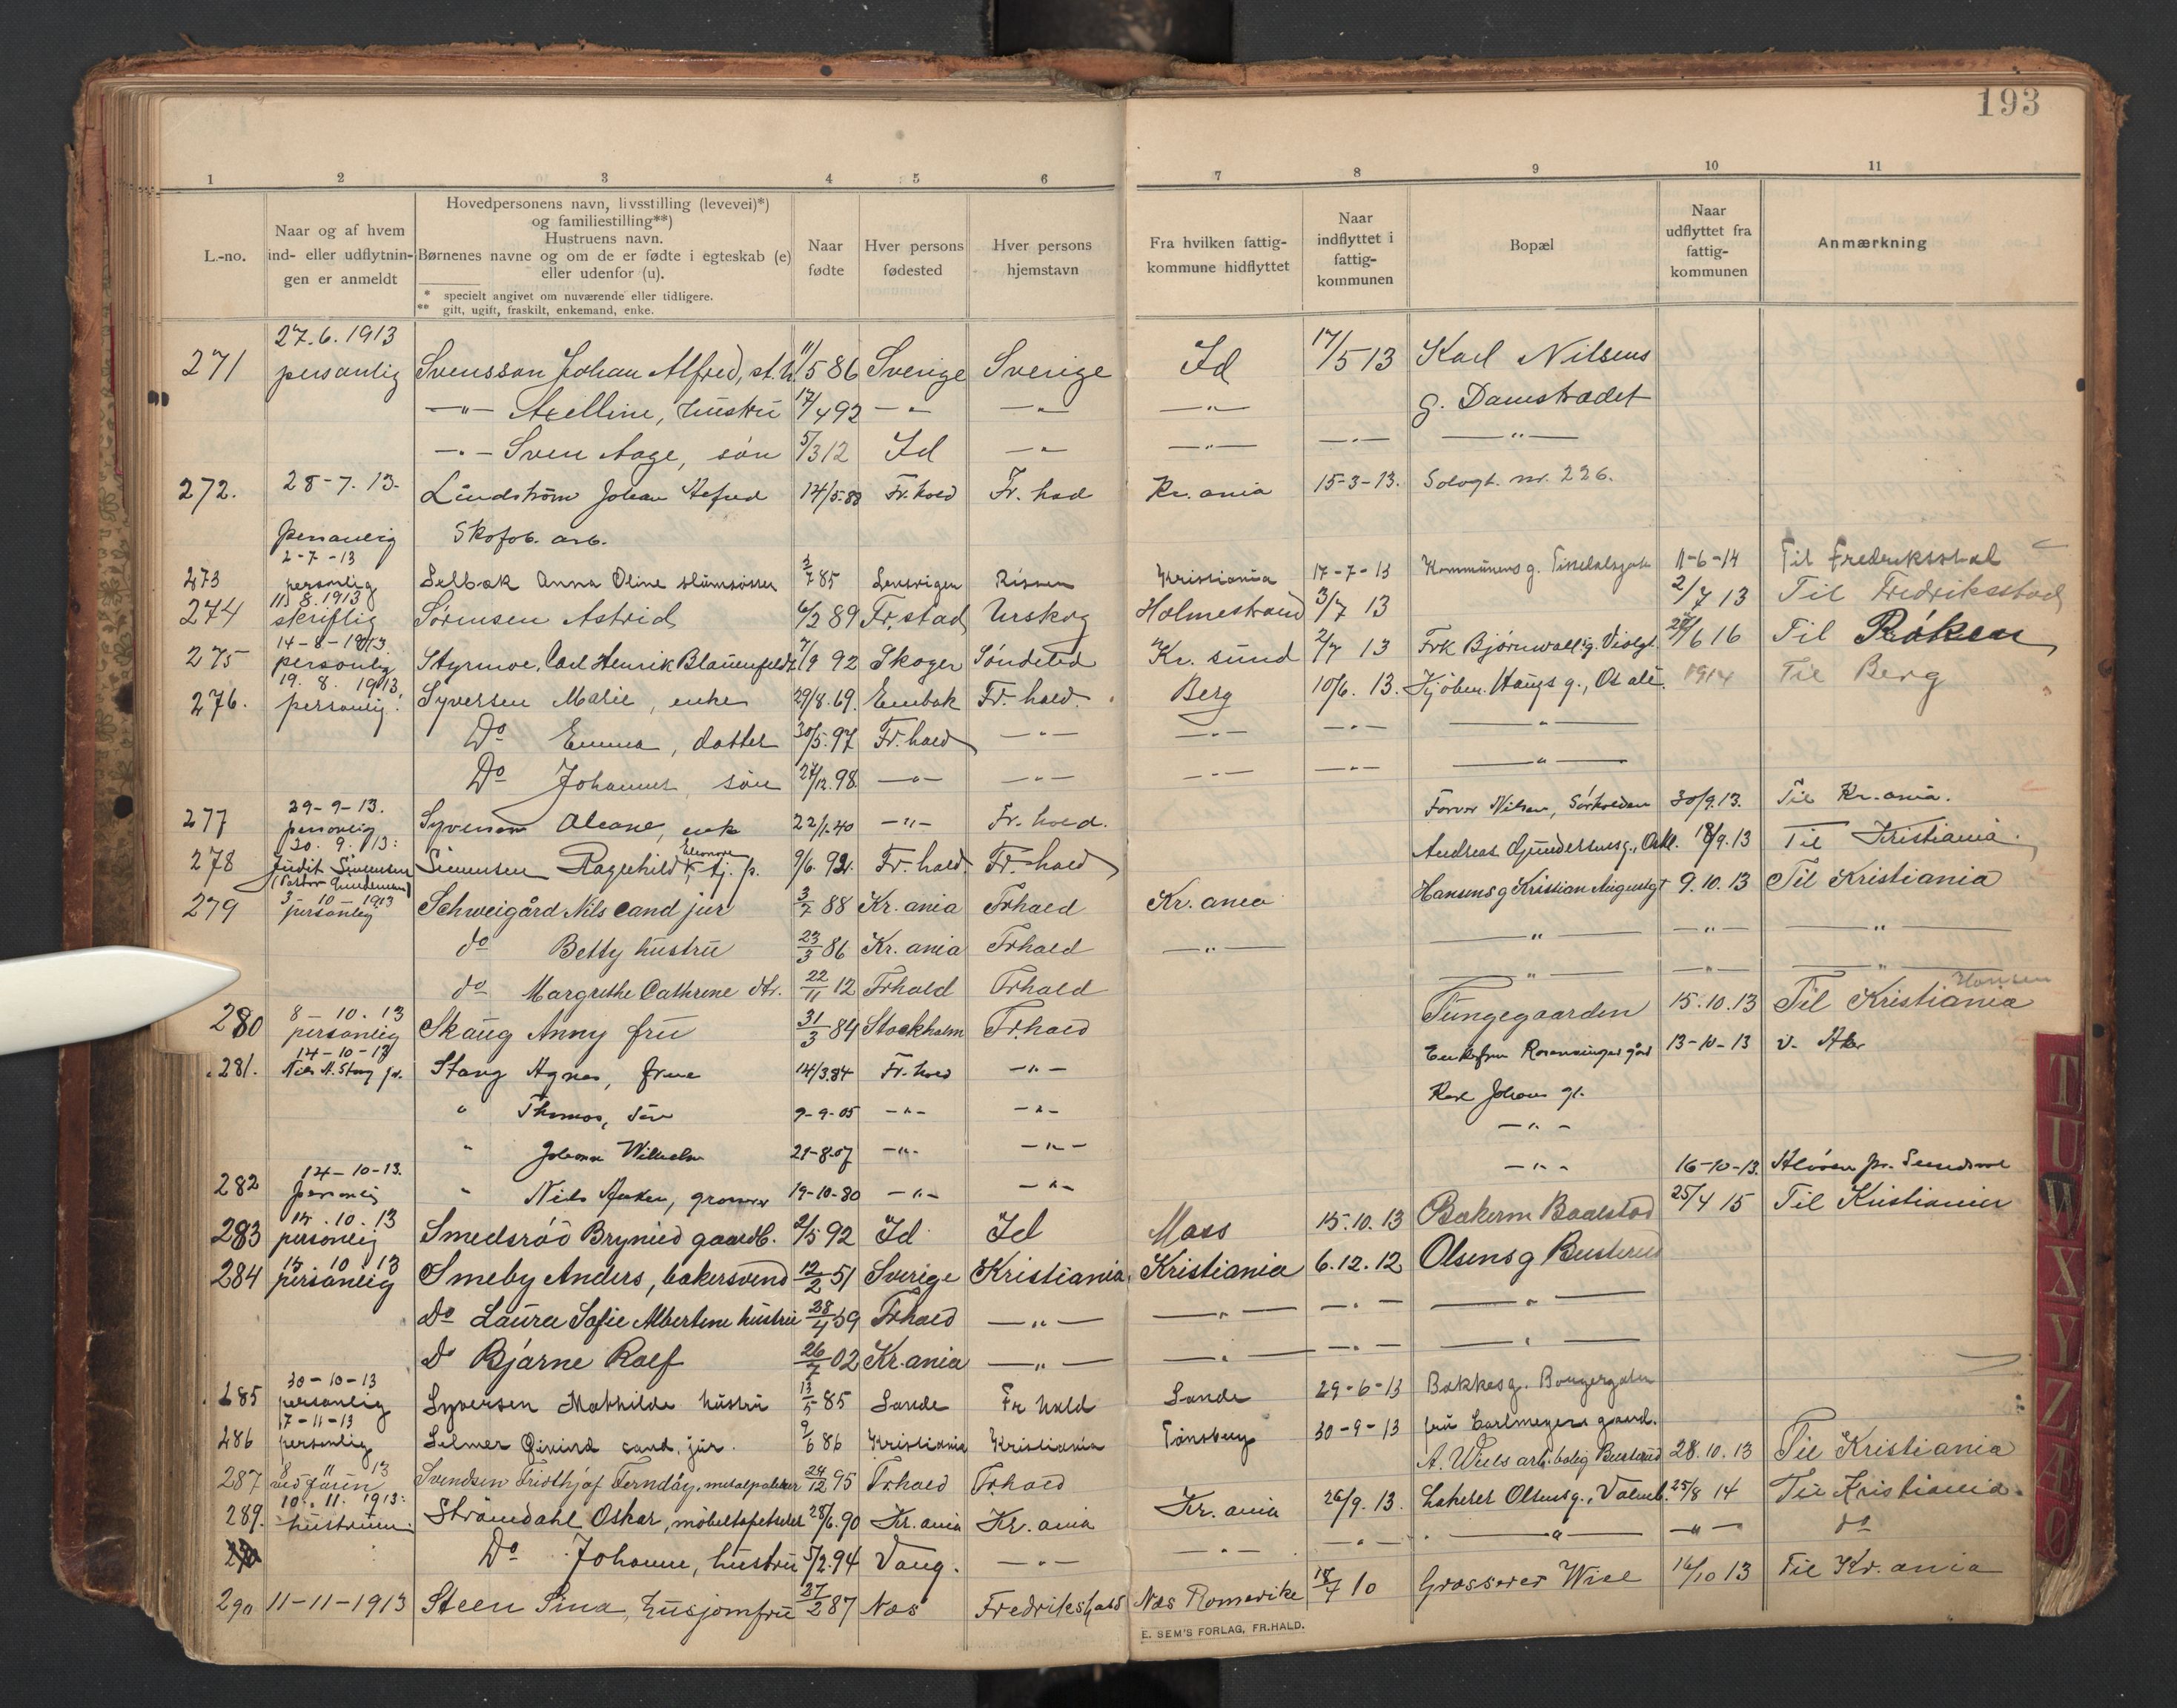 193
1 2 3 4 5 6 7 8 9 10 11
L.-no.
Naar og af hvem ind- eller udflytnin- gen er anmeldt
Hovedpersonens navn, livsstilling (levevei)*)
og familiestilling**)
Hustruens navn.
Børnenes navne og om de er fødte i egteskab (e)
eller udenfor (u).
* specielt angivet om nuværende eller tidligere.
** gift, ugift, fraskilt, enkemand, enke.
Naar fødte
Hver persons fødested
Hver persons hjemstavn
Fra hvilken fattig- kommune hidflyttet
Naar indflyttet i fattig- kommunen
Bopæl
Naar udflyttet fra fattig- kommunen
Anmærkning
27.6.1913
271 personlig Svensson Johan Alfred, st.h. 11/5 86 Sverige Sverige Id 17/5 13 Karl Nilsens
—"— Axelline, hustru 17/4 92 —"— —"— —"— g. Damstrædet
—"— Sven Aage, søn 5/3 12 Id —"— —"— —"— —"—
272. 28-7.13. Lindström Johan Alfred 14/5.88 Fr.hald Fr.hald Kr.ania 15-3-13. Sologt. nr. 226.
personlig Skofab. arb.
2-7-13
273 personlig Selbæk Anna Oline slumsøster 3/7 85 Lensvigen Rissen Kristiania 17-7-13 Kommunens g. Tistedalsgate 11-6-14 Til Fredriksstad
11.8.1913
274 skriftlig Sørensen Astrid 6/2 89 Fr.stad Urskog Holmestrand 3/7 13 2/7 13 Til Fredriksstad
14-8-1913.
275 personlig Styrmoe, Carl Henrik Blauenfeldt 7/9 92 Skoger Søndeled Kr.sund 2/7 13 Frk Bjørnvall g. Violgt. 24/6 16 Til Røken
19.8.1913,
276. personlig. Syversen Marie, enke 29/8.69. Enebak Fr.hald. Berg 10/6.13. Kjøbm. Haugs g., Os alé. 1914 Til Berg
Do Emma, datter 30/5.97 Fr.hald —"— —"— —"— —"—
Do Johannes, søn 27/12.98. —"— —"— —"— —"— —"—
29-9-13.
277 personlig Syversen Oleane, enk 22/1.40 —"— Fr.hald. Forvor Nilsen, Sørhalden 30/9.13. Til Kr.ania.
30.9.13:
278 Judit Simensen (Pastor Lindeman) Simensen Ragnhild Eleonore, tj.p. 9/6.92. Fr.hald. Fr.hald Andreas Gundersens g., Oskl. 18/9.13 Til Kristiania.
3-10-1913
279 personlig Schweigård Nils cand jur 3/7 88 Kr.ania Frhald Kr.ania Hansens g Kristian Augustgt 9.10.13 Til Kristiania
do Betty hustru 23/3 86 Kr.ania Frhald —"— —"— —"— —"—
do Margrethe Cathrine dtr. 22/11 12 Frhald Frhald —"— —"— —"—
8-10.13
280 personlig Skaug Anny fru 31/3 84 Stockholm Frhald Tungegaarden 15.10.13 Til Kristiania Hansen
14-10-13
281. Niels A. Stang jr. Stang Agnes, frue 14/3.84 Fr.hald —"— Enkefru Rosensinges gård 13-10-13 V. Aker
" Thomas, søn 9-9-05 —"— —"— Karl Johans gt.
" Johan Wilhelm 29-8-07 —"— —"— —"—
14-10-13.
282 personlig " Niels Anker, grosserer 19-10-80 —"— —"— —"— 16-10-13.
15.10.13
283 personlig Smedsrød Brynild gaardb. 2/5 92 Id Id Moss 15.10.13 Bakerm Baalstad 25/4 15 Til Kristiania
15 10 13
284 personlig Smeby Anders, bakersvend 12/2 51 Sverige Kristiania. Kristiania 6.12.12 Olsens g Busterud
Do Laura Sofie Albertine hustru 28/4 59 Frhald —"— —"— —"— —"—
Do Bjarne Rolf 26/7 02 Kr.ania —"— —"— —"— —"—
30-10-13
285 personlig Syversen Mathilde hustru 13/5 85 Sande Fr hald Sande 29-6-13 Bakkes g. Borgergaten
17-11-13
286 personlig Selmer Øivind cand. jur. 9/6 86 Kristiania Kristiania Tønsberg 30-9-13 fru Carlmeyers gaard.
8 11 13
287 ved faren Svendsen Fridthjof Ferndøy, metalpolerer 24/12 95 Frhald Frhald A. Wiels arb.bolig Busterud 28.10.13 Til Kristiania
10.11.1913:
289. hustruen. Strömdahl Oskar, møbeltapetserer 28/6.90 Kr.ania Kr.ania Kr.ania 26/9.13. Lokerer Olsens g., Volmb. 25/8 14 Til Kristiania.
Do Johanne, hustru 5/2.94 Vang. —"— —"— —"— —"— —"— do
290 11-11-1913 Steen Sina, husjomfru 27/2 87 Næs Fredrikshald Næs Romerike 18/7 10 Grosserer Wiel 16/10 13 Til Kr.ania
E. SEM'S FORLAG, FR.HALD.
T
U
W
X
Y
Z
Æ
Ø